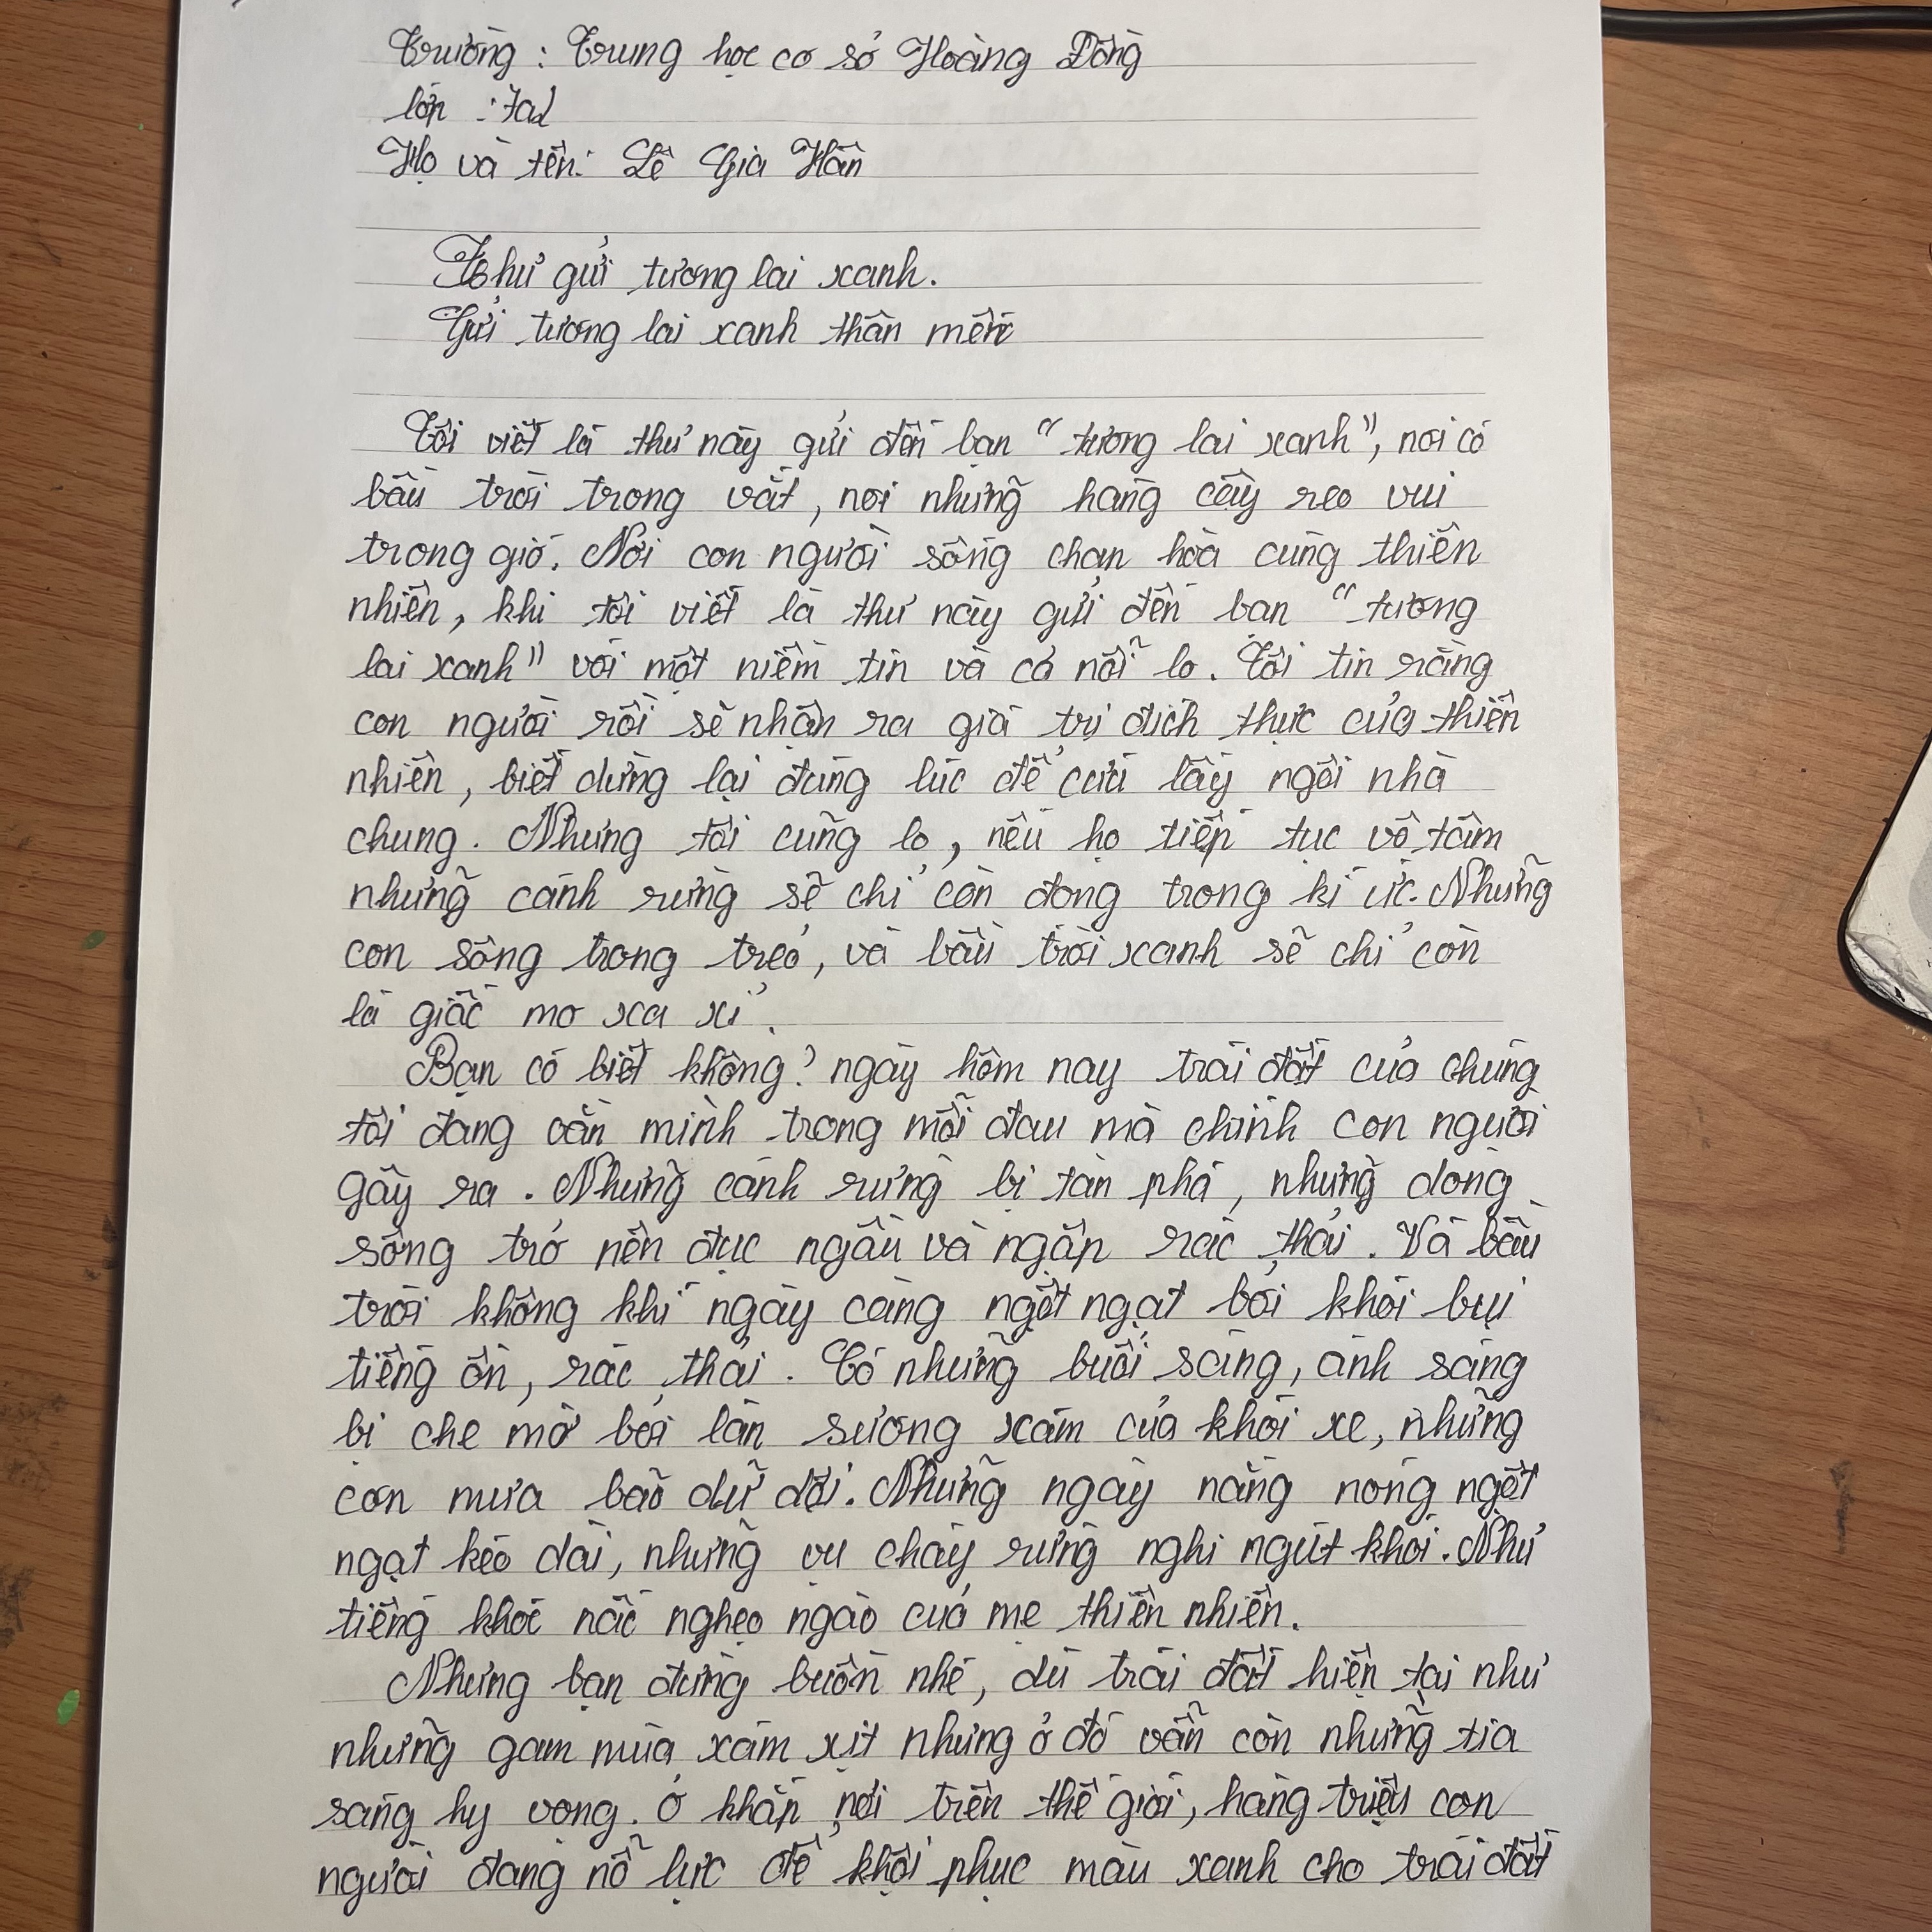 Trường : Trung học cơ sở Hoàng Đồng
lớp : 7a2
Họ và tên: Lê Gia Hân
Thư gửi tương lai xanh.
Gửi tương lai xanh thân mến
Tôi viết lá thư này gửi đến bạn "tương lai xanh", nơi có
bầu trời trong vắt, nơi những hàng cây reo vui
trong gió. Nơi con người sống chan hòa cùng thiên
nhiên, khi tôi viết lá thư này gửi đến bạn "tương
lai xanh" với một niềm tin và cả nỗi lo. Tôi tin rằng
con người rồi sẽ nhận ra giá trị đích thực của thiên
nhiên, biết dừng lại đúng lúc để cứu lấy ngôi nhà
chung. Nhưng tôi cũng lo, nếu họ tiếp tục vô tâm
những cánh rừng sẽ chỉ còn đọng trong kí ức. Những
con sông trong trẻo, và bầu trời xanh sẽ chỉ còn
là giấc mơ xa xỉ.
Bạn có biết không? ngày hôm nay trái đất của chúng
tôi đang oằn mình trong mỗi đau mà chính con người
gây ra. Những cánh rừng bị tàn phá, những dòng
sông trở nên đục ngầu và ngập rác thải. Và bầu
trời không khí ngày càng ngột ngạt bởi khói bụi
tiếng ồn, rác thải. Có những buổi sáng, ánh sáng
bị che mờ bởi làn sương xám của khói xe, những
cơn mưa bão dữ dội. Những ngày nắng nóng ngột
ngạt kéo dài, những vụ cháy rừng nghi ngút khói. Như
tiếng khóc nấc nghẹo ngào của mẹ thiên nhiên.
Nhưng bạn đừng buồn nhé, dù trái đất hiện tại như
những gam mùa xám xịt nhưng ở đó vẫn còn những tia
sáng hy vọng. Ở khắp nơi trên thế giới, hàng triệu con
người đang nỗ lực để khôi phục màu xanh cho trái đất